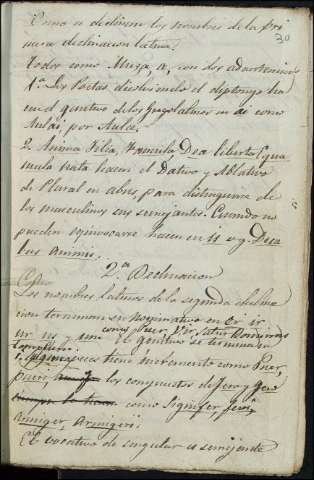 Como se declinan los nombres de la pri
30
mera declinacion latina?
Todos como Musa, a, con dos advertencias
1.ª Los Poetas disolviendo el diptongo ha
en el genitivo de los Griegolatinos en ai como
Aulai por Aulæ.
2. Anima Filia, Famula, Dea liberta Equa
mula nata hacen el Dativo y Ablativo
de Plural en abus, para distinguirse de
los masculinos sus semejantes. Cuando no
pueden equivocarse hacen en is v.g. Dea
bus Animis.
2.ª Declinacion
Los nombres latinos de la segunda declina
cion terminan en nominativo en er ir
ur us um como Puer, Vir, Satur Dominus
Templum. El genitivo se termina en
i. Algunos pocos tiene incremento como Puer
pueri los compuestos de fero y gero
como Signifer, feri
Armiger, Armigeri.
El vocativo de singular es semejante